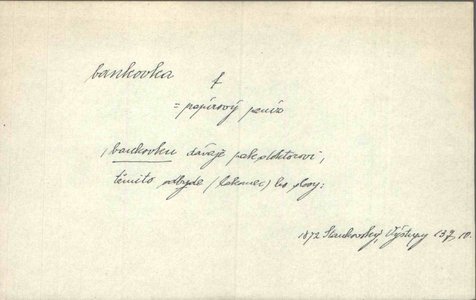 bankovka
f
= papírový peníz
/ bankovku dávaje pak doktorovi,
těmito odbyde / lakomec / ho slovy:
1872 Stankovský, Výstupy 137, 10.